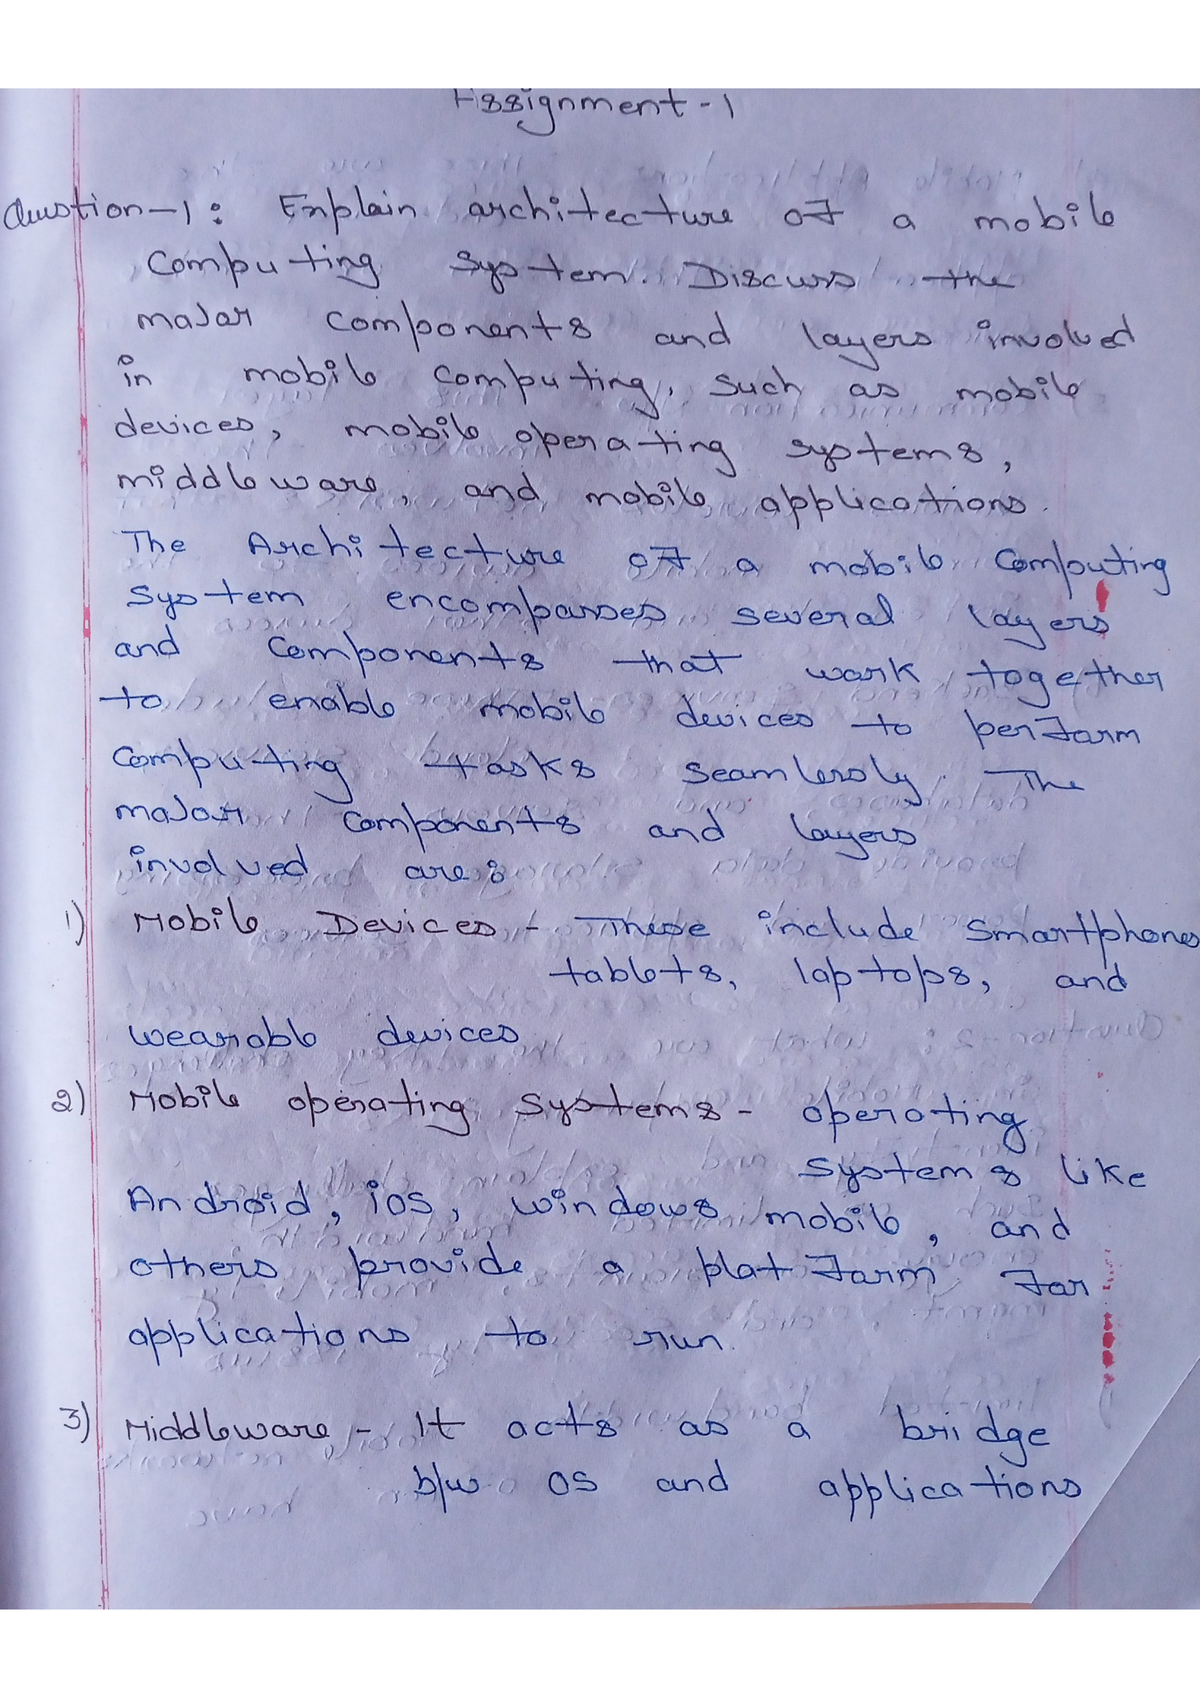 Assignment-1
Question-1: Explain architecture of a mobile
Computing System. Discuss the
major components and layers involved
in mobile computing, such as mobile
devices, mobile operating systems,
middleware, and mobile applications.
The Architecture of a mobile Computing
System encompasses several layers
and Components that work together
to enable mobile devices to perform
Computing tasks seamlessly. The
major Components and layers
involved are:
1) Mobile Devices - These include Smartphones
tablets, laptops, and
wearable devices
2) Mobile operating Systems - operating
Systems like
Android, ios, windows mobile, and
others provide a platform for
applications to run.
3) Middleware - It acts as a bridge
b/w OS and applications